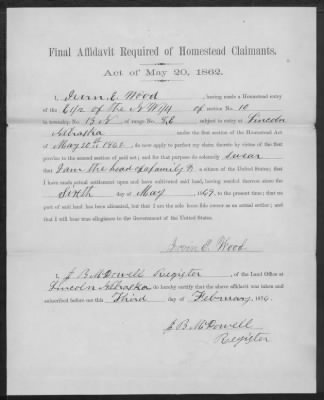 Final Affidavit Required of Homestead Claimants.
Act of May 20, 1862.
I, Irvin E. Wood, having made a Homestead entry
of the E 1/2 of the N W 1/4 of section No. 10
in township No. 13 N of range No. 5 E subject to entry at Lincoln
Nebraska under the first section of the Homestead Act
of May 20th 1862, do now apply to perfect my claim thereto by virtue of the first
proviso to the second section of said act; and for that purpose do solemnly swear
that I am the head of a family & a citizen of the United States; that I
have made actual settlement upon and have cultivated said land, having resided thereon since the
Sixth day of May, 1867, to the present time; that no
part of said land has been alienated, but that I am the sole bona fide owner as an actual settler; and
that I will bear true allegiance to the Government of the United States.
Irvin E. Wood
I, J B McDowell Register, of the Land Office at
Lincoln Nebraska do hereby certify that the above affidavit was taken and
subscribed before me this Third day of February 1874.
J B McDowell
Register